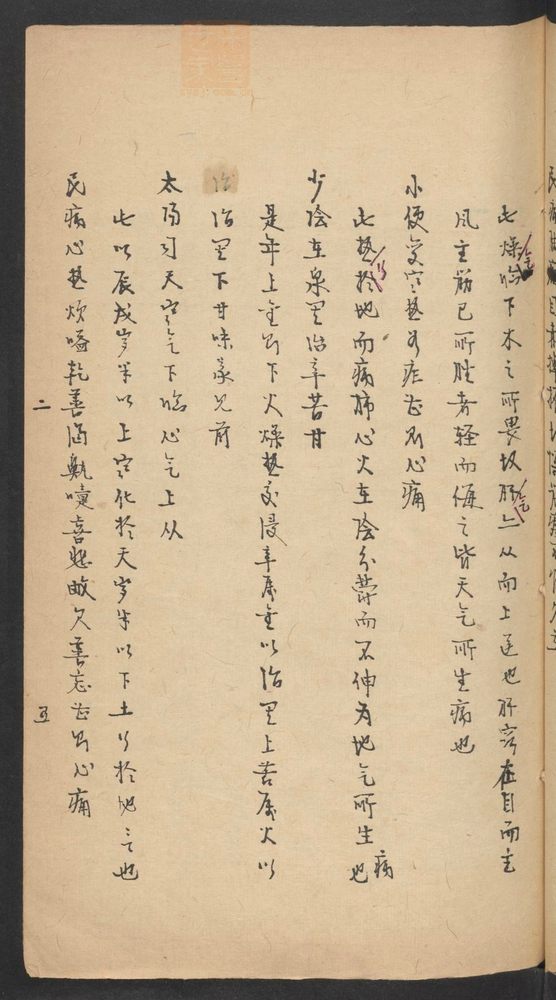 此燥氣臨下木之所畏故肝气从而上逆也肝窍在目而主
风主筋已所胜者轻而侮之皆天气所生病也
小便变寒热为疟甚则心痛
此热行於地而病肺心火在阴分蔚而不伸为地气所生病也
少陰在泉里治辛苦甘
是年上金则下火燥热交侵辛属金以治里上苦属火以
治里下甘味义见前
太阳司天寒气下临心气上从
此以辰戌岁半以上寒化於天岁半以下土行於地言也
民病心热烦嗌乾善渴鼽嚏喜悲数欠善忘甚则心痛
二
五